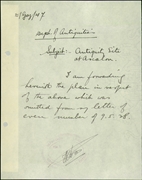 Dept of Antiquities
Subject: Antiquity Site
at Ascalon.
I am forwarding
herewith the plan in respect
of the above which was
omitted from my letter of
even number of 9.5.28.